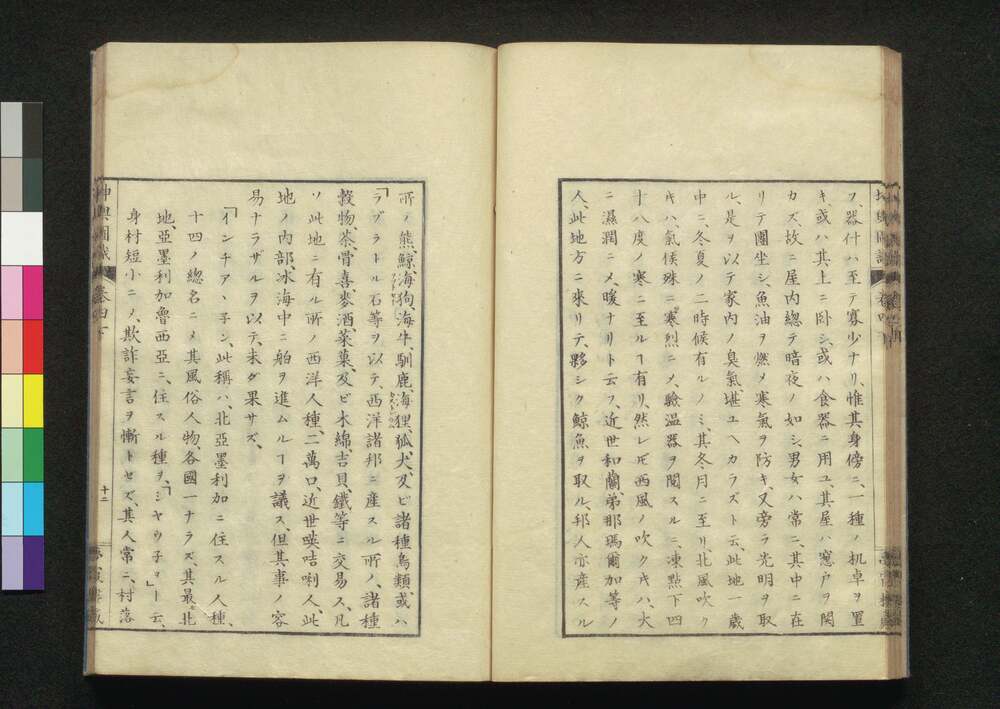 フ、器什ハ至テ寡少ナリ、惟其身傍ニ、一種ノ机卓ヲ置
キ、或ハ其上ニ卧シ、或ハ食器ニ用ユ、其屋ハ窓戸ヲ閉
カズ、故ニ屋内總テ暗夜ノ如シ、男女ハ常ニ、其中ニ在
リテ團坐シ、魚油ヲ燃メ寒氣ヲ防キ、又旁ラ光明ヲ取
ル、是ヲ以テ家内ノ臭氣堪ユヘカラズト云、此地一歳
中ニ、冬夏ノ二時候有ルノミ、其冬月ニ至リ、北風吹ク
キハ、氣候殊ニ寒烈ニメ、驗温器ヲ閲スルニ、凍點下四
十八度ノ寒ニ至ルヿ有リ、然レ𪜈西風ノ吹クキハ、大
ニ濕潤ニメ、暖ナリト云フ、近世和蘭、弟那瑪爾加等ノ
人、此地方ニ來リテ、夥シク鯨魚ヲ取ル、邦人亦産スル
所ノ熊、鯨、海狗、海牛、馴鹿、海狸、狐、犬、及ビ諸種鳥類、或ハ
「ラブラトル石等ヲ以テ、西洋諸邦ニ産スル所ノ、諸種
穀物、茶、骨喜、麥酒、菜菓、及ビ木綿、吉貝、鐵等ニ交易ス、凡
ソ此地ニ有ル所ノ西洋人種、二萬口、近世暎咭唎人、此
地ノ内部、冰海中ニ舶ヲ進ムルヿヲ議ス、但其事ノ容
易ナラザルヲ以テ、未ダ果サズ、
「インチア、子ン、此稱ハ、北亞墨利加ニ住スル人種、
十四ノ總名ニメ其風俗人物、各國一ナラズ、其最北
地、亞墨利加魯西亞ニ、住スル種ヲ、「ミヤウ子ヲ」ート云、
身材短小ニノ、欺詐妄言ヲ慚トセズ、其人常ニ、村落
坤輿圖識
卷四下
十二